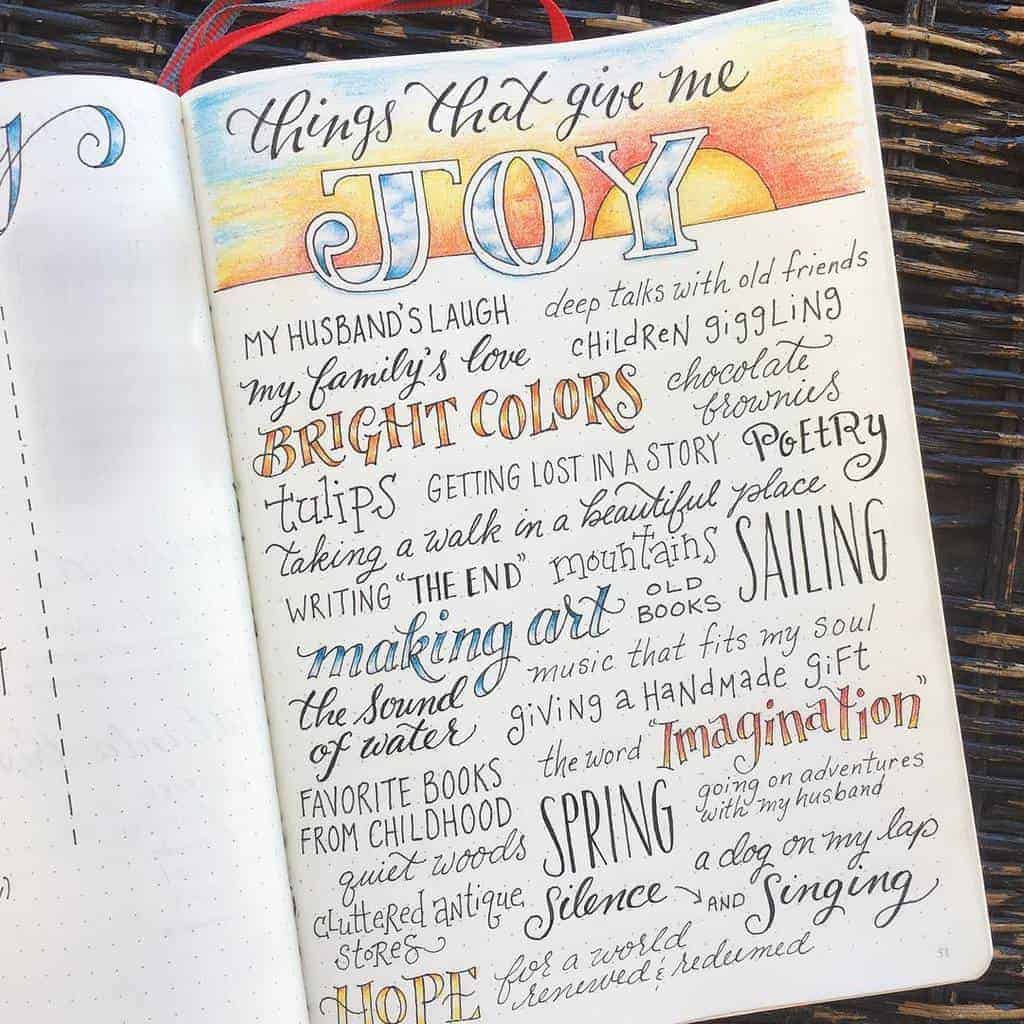 things that give me
JOY
MY HUSBAND'S LAUGH deep talks with old friends
my family's love CHILDREN GIGGLING
BRIGHT COLORS chocolate brownies
tulips GETTING LOST IN A STORY POETRY
taking a walk in a beautiful place
WRITING "THE END" mountains SAILING
making art OLD BOOKS
the sound of water music that fits my soul
giving a HANdMAdE GiFT
the word "Imagination"
FAVORITE BOOKS FROM CHILDHOOD SPRING going on adventures with my husband
quiet woods a dog on my lap
cluttered antique stores Silence AND Singing
HOPE for a world renewed & redeemed
51